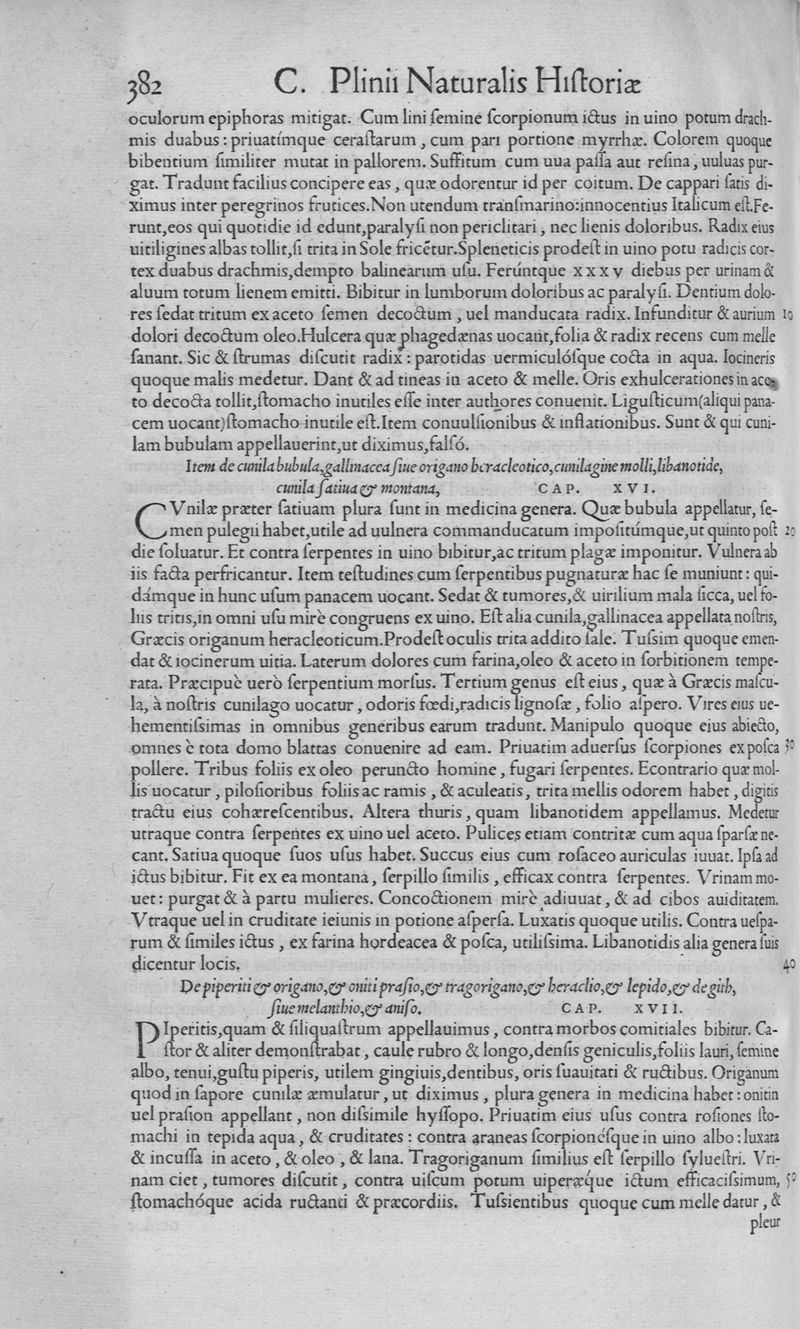 382 C. Plinii Naturalis Hiſtoriæ
oculorum epiphoras mitigat. Cum lini ſemine ſcorpionum ictus in uino potum drach-
mis duabus: priuatímque ceraſtarum, cum pari portione myrrhæ. Colorem quoque
bibentium ſimiliter mutat in pallorem. Suffitum cum uua paſſa aut reſina, uuluas pur-
gat. Tradunt facilius concipere eas, quæ odorentur id per coitum. De cappari ſatis di-
ximus inter peregrinos frutices. Non utendum tranſmarino: innocentius Italicum eſt. Fe-
runt, eos qui quotidie id edunt, paralyſi non periclitari, nec lienis doloribus. Radix eius
uitiligines albas tollit, ſi trita in Sole fricétur. Spleneticis prodeſt in uino potu radicis cor-
tex duabus drachmis, dempto balinearum uſu. Ferúntque xxxv diebus per urinam &
aluum totum lienem emitti. Bibitur in lumborum doloribus ac paralyſi. Dentium dolo-
res ſedat tritum ex aceto ſemen decoctum, uel manducata radix. Infunditur & aurium 10
dolori decoctum oleo. Hulcera quæ phagedænas uocant, folia & radix recens cum melle
ſanant. Sic & ſtrumas diſcutit radix: parotidas uermiculóſque cocta in aqua. Iocineris
quoque malis medetur. Dant & ad tineas in aceto & melle. Oris exhulcerationes in ace-
to decocta tollit, ſtomacho inutiles eſſe inter authores conuenit. Liguſticum (aliqui pana-
cem uocant) ſtomacho inutile eſt. Item conuulſionibus & inflationibus. Sunt & qui cuni-
lam bubulam appellauerint, ut diximus, falſó.
Item de cunila bubula, gallinacea ſiue origano heracleotico, cunilagine molli, libanotide,
cunila ſatiua & montana, CAP. XVI.
CVnilæ præter ſatiuam plura ſunt in medicina genera. Quæ bubula appellatur, ſe-
men pulegii habet, utile ad uulnera commanducatum impoſitúmque, ut quinto poſt 20
die ſoluatur. Et contra ſerpentes in uino bibitur, ac tritum plagæ imponitur. Vulnera ab
iis facta perfricantur. Item teſtudines cum ſerpentibus pugnaturæ hac ſe muniunt: qui-
dámque in hunc uſum panacem uocant. Sedat & tumores, & uirilium mala ſicca, uel fo-
liis tritis, in omni uſu mirè congruens ex uino. Eſt alia cunila, gallinacea appellata noſtris,
Græcis origanum heracleoticum. Prodeſt oculis trita addito ſale. Tuſsim quoque emen-
dat & iocinerum uitia. Laterum dolores cum farina, oleo & aceto in ſorbitionem tempe-
rata. Præcipuè uerò ſerpentium morſus. Tertium genus eſt eius, quæ à Græcis maſcu-
la, à noſtris cunilago uocatur, odoris fœdi, radicis lignoſæ, folio aſpero. Vires eius ue-
hementiſsimas in omnibus generibus earum tradunt. Manipulo quoque eius abiecto,
omnes è tota domo blattas conuenire ad eam. Priuatim aduerſus ſcorpiones ex poſca 30
pollere. Tribus foliis ex oleo peruncto homine, fugari ſerpentes. Econtrario quæ mol-
lis uocatur, piloſioribus foliis ac ramis, & aculeatis, trita mellis odorem habet, digitis
tractu eius cohæreſcentibus. Altera thuris, quam libanotidem appellamus. Medetur
utraque contra ſerpentes ex uino uel aceto. Pulices etiam contritæ cum aqua ſparſæ ne-
cant. Satiua quoque ſuos uſus habet. Succus eius cum roſaceo auriculas iuuat. Ipſa ad
ictus bibitur. Fit ex ea montana, ſerpillo ſimilis, efficax contra ſerpentes. Vrinam mo-
uet: purgat & à partu mulieres. Concoctionem mirè adiuuat, & ad cibos auiditatem.
Vtraque uel in cruditate ieiunis in potione aſperſa. Luxatis quoque utilis. Contra ueſpa-
rum & ſimiles ictus, ex farina hordeacea & poſca, utiliſsima. Libanotidis alia genera ſuis
dicentur locis. 40
De piperiti & origano, & oniti praſio, & tragorigano, & heraclio, & lepido, & de gith,
ſiue melanthio, & aniſo. CAP. XVII.
PIperitis, quam & ſiliquaſtrum appellauimus, contra morbos comitiales bibitur. Ca-
ſtor & aliter demonſtrabat, caule rubro & longo, denſis geniculis, foliis lauri, ſemine
albo, tenui, guſtu piperis, utilem gingiuis, dentibus, oris ſuauitati & ructibus. Origanum
quod in ſapore cunilæ æmulatur, ut diximus, plura genera in medicina habet: onitin
uel praſion appellant, non diſsimile hyſſopo. Priuatim eius uſus contra roſiones ſto-
machi in tepida aqua, & cruditates: contra araneas ſcorpionéſque in uino albo: luxata
& incuſſa in aceto, & oleo, & lana. Tragoriganum ſimilius eſt ſerpillo ſylueſtri. Vri-
nam ciet, tumores diſcutit, contra uiſcum potum uiperæque ictum efficaciſsimum, 50
ſtomachóque acida ructanti & præcordiis. Tuſsientibus quoque cum melle datur, &
pleur